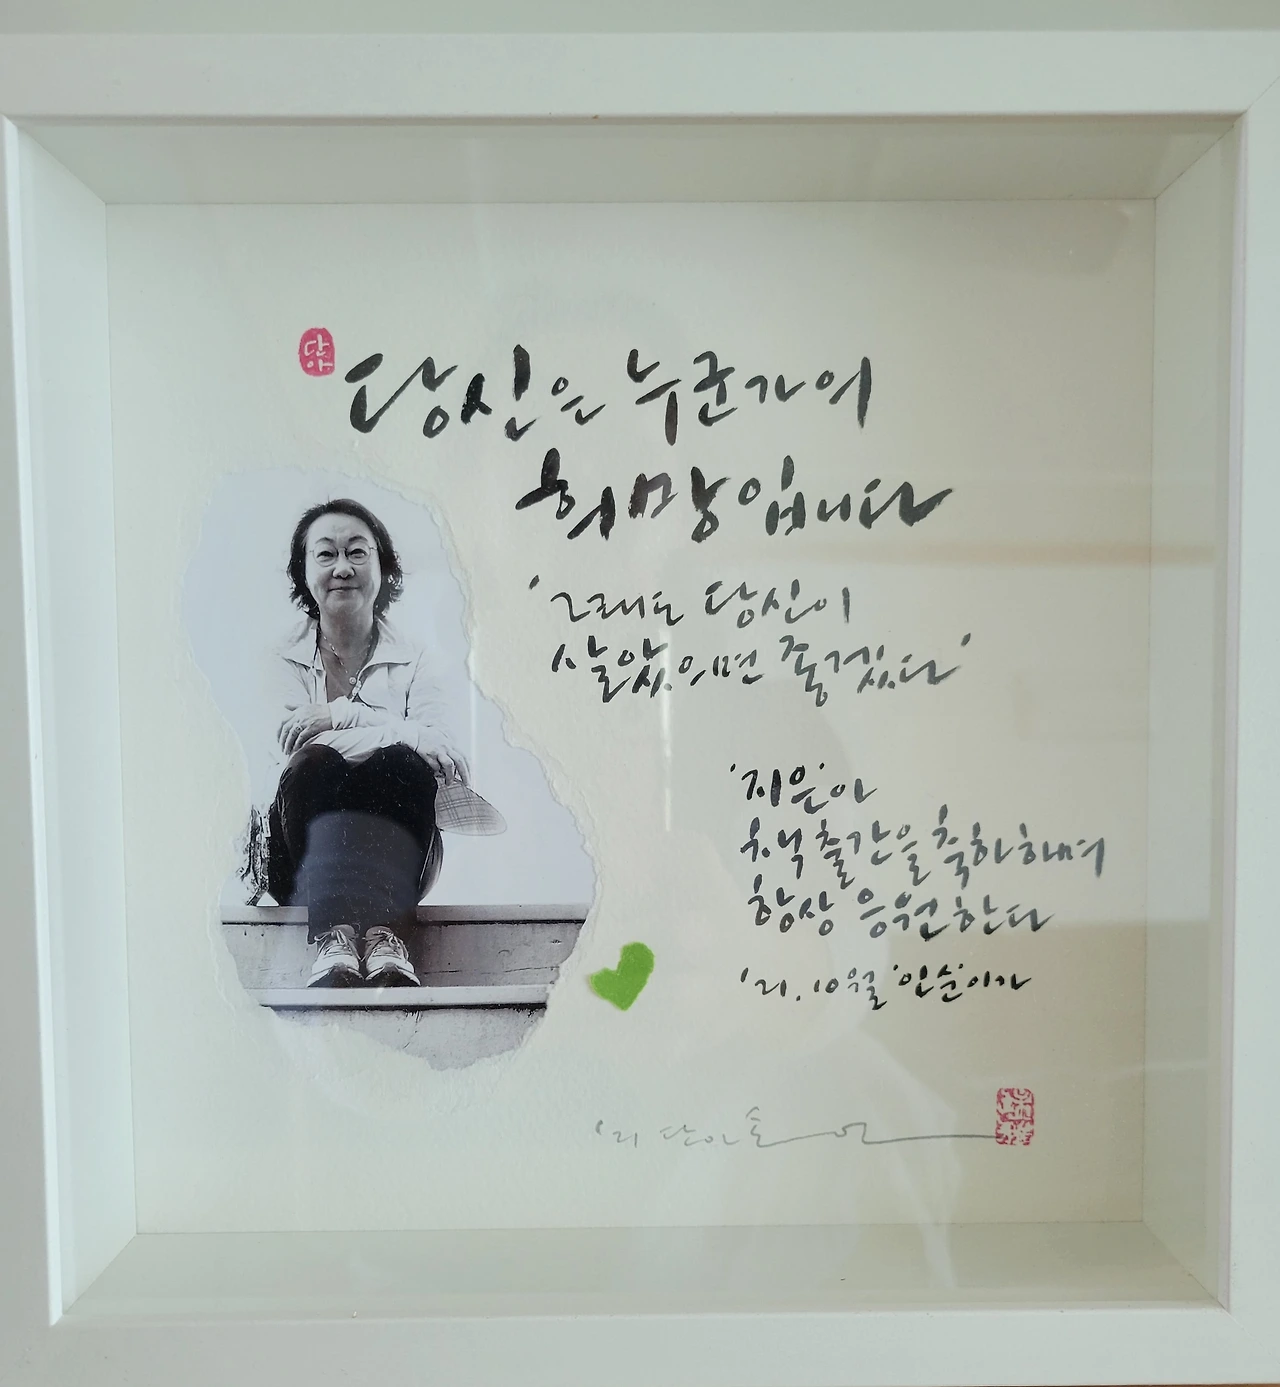 단아
당신은 누군가의
희망입니다
'그래도 당신이
살았으면 좋겠다'
'지은'아
첫책 출간을 축하하며
항상 응원한다
'21. 10월 '인순'이가
'21 단아